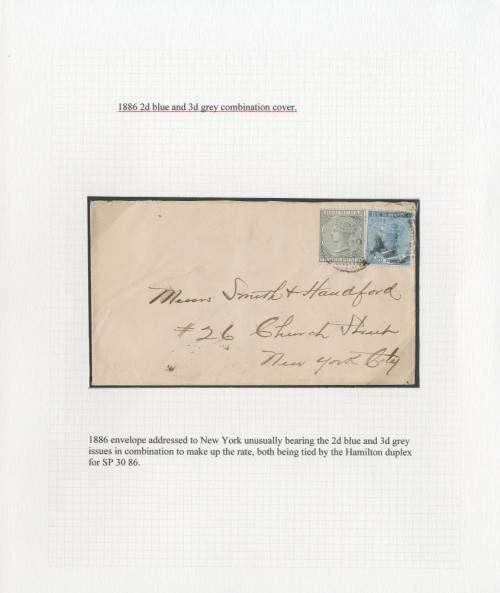 1886 2d blue and 3d grey combination cover.
BERMUDA
Messrs Smith & Handford
# 26 Church Street
New York City
1886 envelope addressed to New York unusually bearing the 2d blue and 3d grey
issues in combination to make up the rate, both being tied by the Hamilton duplex
for SP 30 86.